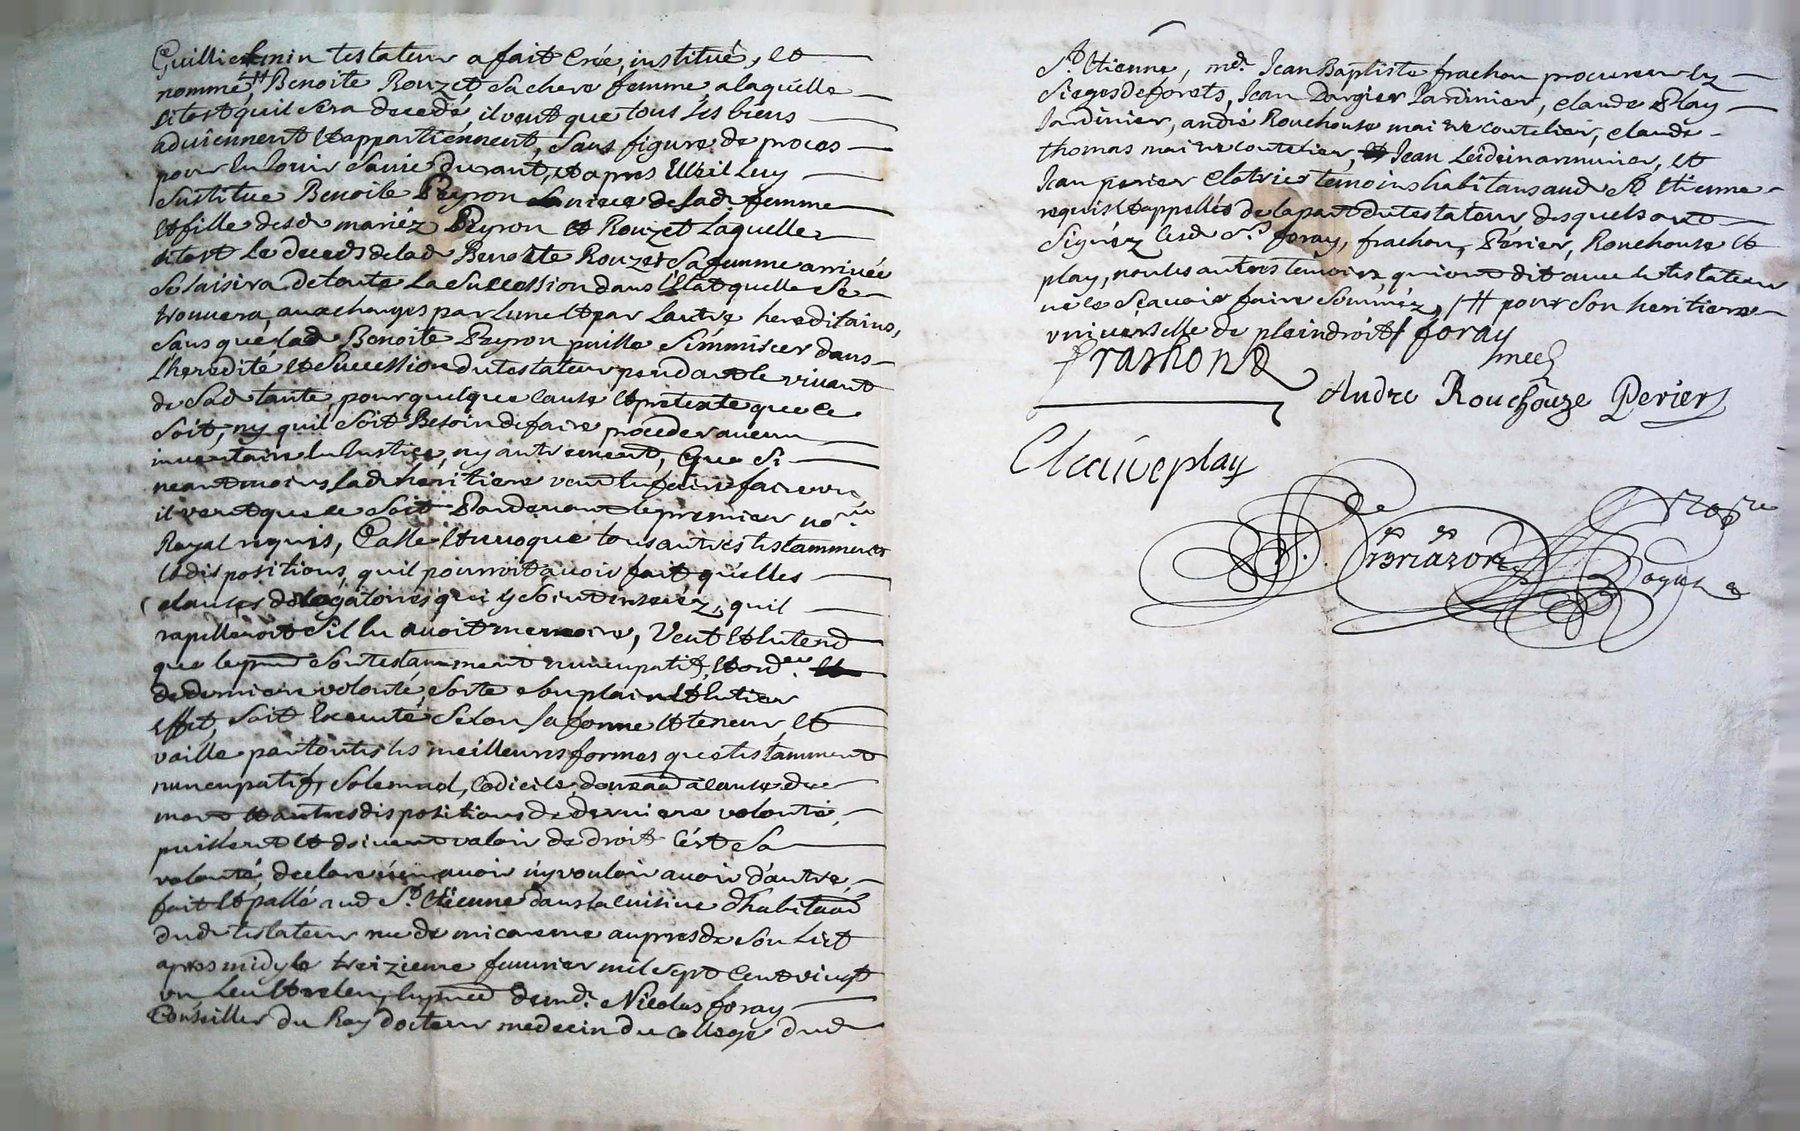 Guilliermin testateur a fait Creé, institué, et
nommé, # Benoite Rouzet sa chere femme a laquelle
sitost quil sera decedé, il veut que tous ses biens
adviennent et appartiennent, sans figure de proces
pour en Jouir sa vie durant, et apres Elle il luy
substitue Benoite Peyron sa niece de sad. femme
et fille desd. mariéz Peyron et Rouzet Laquelle
sitost Le deceds de lad. Benoite Rouzet sa femme arrivée
se saisira de toute La Succession dans l'Estat quelle se
trouvera, aux charges par l'une et par l'autre hereditaires,
Sans que lad. Benoite Peyron puisse s'immiscer dans
L'heredité et Succession du testateur pendant le vivant
de Sad. tante pour quelque cause et pretexte que ce
soit, ny quil soit Besoin de faire proceder a aucun
inventaire en Justice, ny autrement, Que si
neantmoins lad. heritiere veut en faire faire un
il veut que ce soit Pardevant le premier no.re
Royal requis, Casse et revoque tous autres testamments
et dispositions, quil pourroit avoir fait quelles
clauses dérogatoires qui y soient inserez, quil
rapelleroit sil en avoit memoire, Veut et entend
que le pnt son testamment nuncupatif, et ord.ce
de derniere volonté sorte son plain et entier
effet, soit Executé selon sa forme et teneur et
vaille par toutes les meilleures formes que testamment
nuncupatif, solemnel, Codicile, donaon a cause de
mort et autres dispositions de derniere volonté,
puissent et doivent valoir de droit C'est sa
volonté, declare n'en avoir ny vouloir avoir d'autre,
fait et passé aud. St. Etienne dans la cuisine d'habitaon
dud. testateur rue de micareme aupres de son Lict
apres midy le treizieme fevrier mil sept Cent vingt
un Leu et releu, en pnce de md. Nicolas foray
Conseiller du Roy docteur medecin du College dud.
St. Etienne, md. Jean Baptiste frachon procureur ez
Sieges de forets, Jean Dorgier Jardinier, claude Play
Jardinier, andré Rouchouse maitre coutelier, claude
thomas maitre coutelier, Jean armurier, et
Jean perier Clotrier temoins habitans aud. St. Etienne
requis et appellés de la part du testateur desquels ont
Signéz lesd. Srs. foray, frachon, Périer, Rouchouse et
play, non les autres temoins qui ont dit avec le testateur
ne le sçavoir faire sommez, /# pour son heritiere
universelle de plein droit/ foray
frachond med.
Andre Rouchouze Perier
Claudeplay